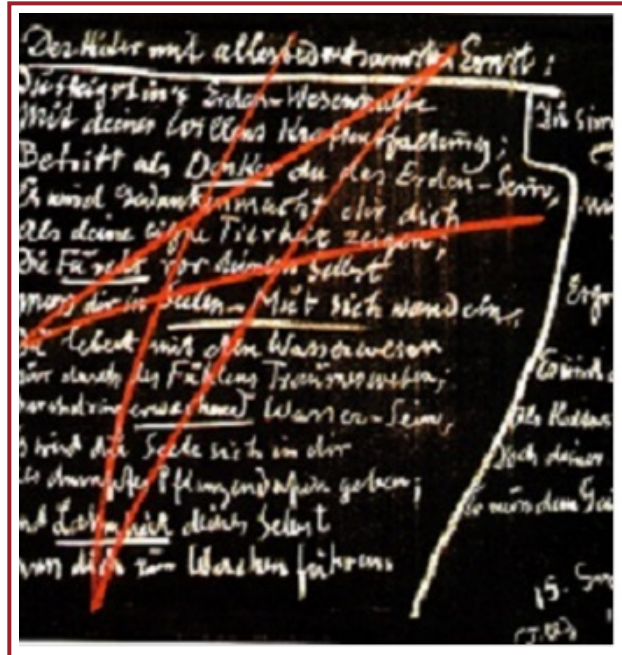 Der Hüter mit allerbedeutsamstem Ernst:
Du steigst in's Erden-Wesenhafte
Mit deines Willens Kraftentfaltung;
Betritt als Denker du das Erden-Sein,
Es wird Gedankenmacht dir dich
Als deine eigne Tierheit zeigen;
Die Fürcht vor deinem Selbst
muss dir in Seelen-Müt sich wandeln,
Du lebest mit den Wasserwesen
nür durch des Fühlens Traümesweben;
erwachend Wasser-Sein,
Es wird die Seele sich in dir
als dumpfes Pflanzendasein geben;
Und Lahmheit deines Selbst
muss dich zum Wachen führen
Ich
Es wird
Als
Doch deines
So muss dein
15.